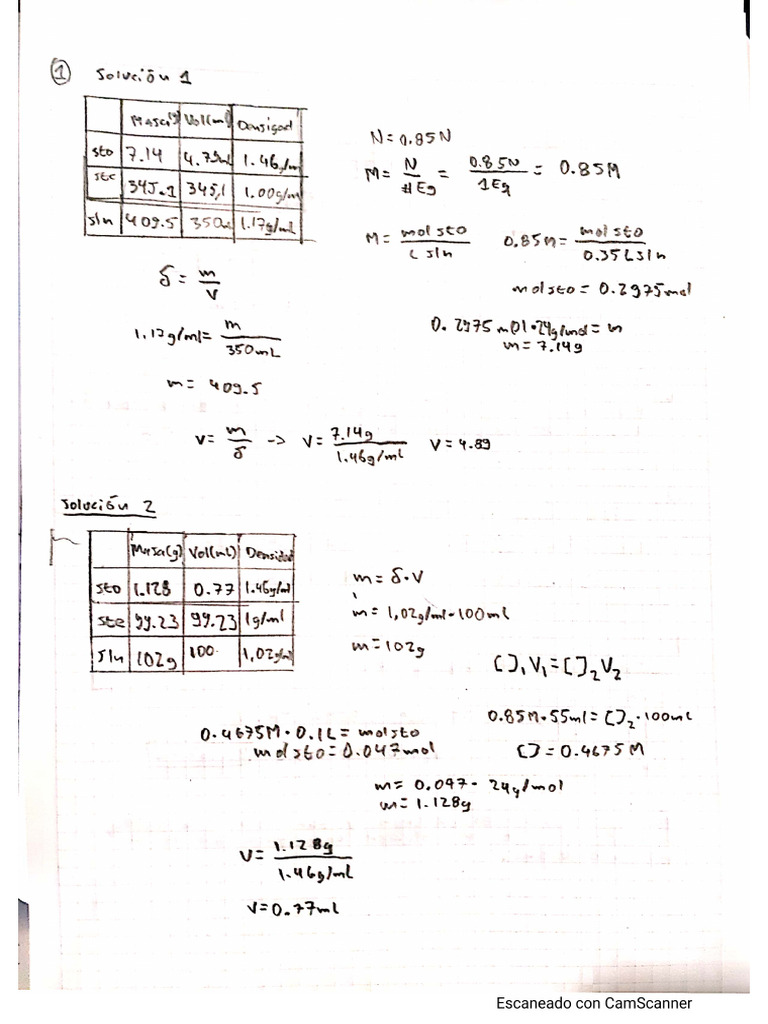 ① Solución 1
Masa(g) Vol(ml) Densidad
sto 7.14 4.79ml 1.46g/ml
ste 345.1 345,1 1.00g/ml
sln 409.5 350ml 1.17g/mL
N = 0.85N
M = N / #Eq = 0.85N / 1Eq = 0.85M
M = mol sto / L sln 0.85M = mol sto / 0.35L sln
mol sto = 0.2975mol
0.2975 mol · 24g/mol = m
m = 7.14g
δ = m / V
1.17g/ml = m / 350mL
m = 409.5
V = m / δ -> V = 7.14g / 1.46g/mL V = 4.89
Solución 2
Masa(g) Vol(ml) Densidad
sto 1.128 0.77 1.46g/ml
ste 99.23 99.23 1g/ml
sln 102g 100. 1,02g/ml
m = δ·V
m = 1,02g/ml·100ml
m = 102g
[ ]₁V₁ = [ ]₂V₂
0.85M·55ml = [ ]₂·100mL
[ ] = 0.4675M
0.4675M · 0.1L = mol sto
mol sto = 0.047mol
m = 0.047 · 24g/mol
m = 1.128g
V = 1.128g / 1.46g/mL
V = 0.77ml
Escaneado con CamScanner